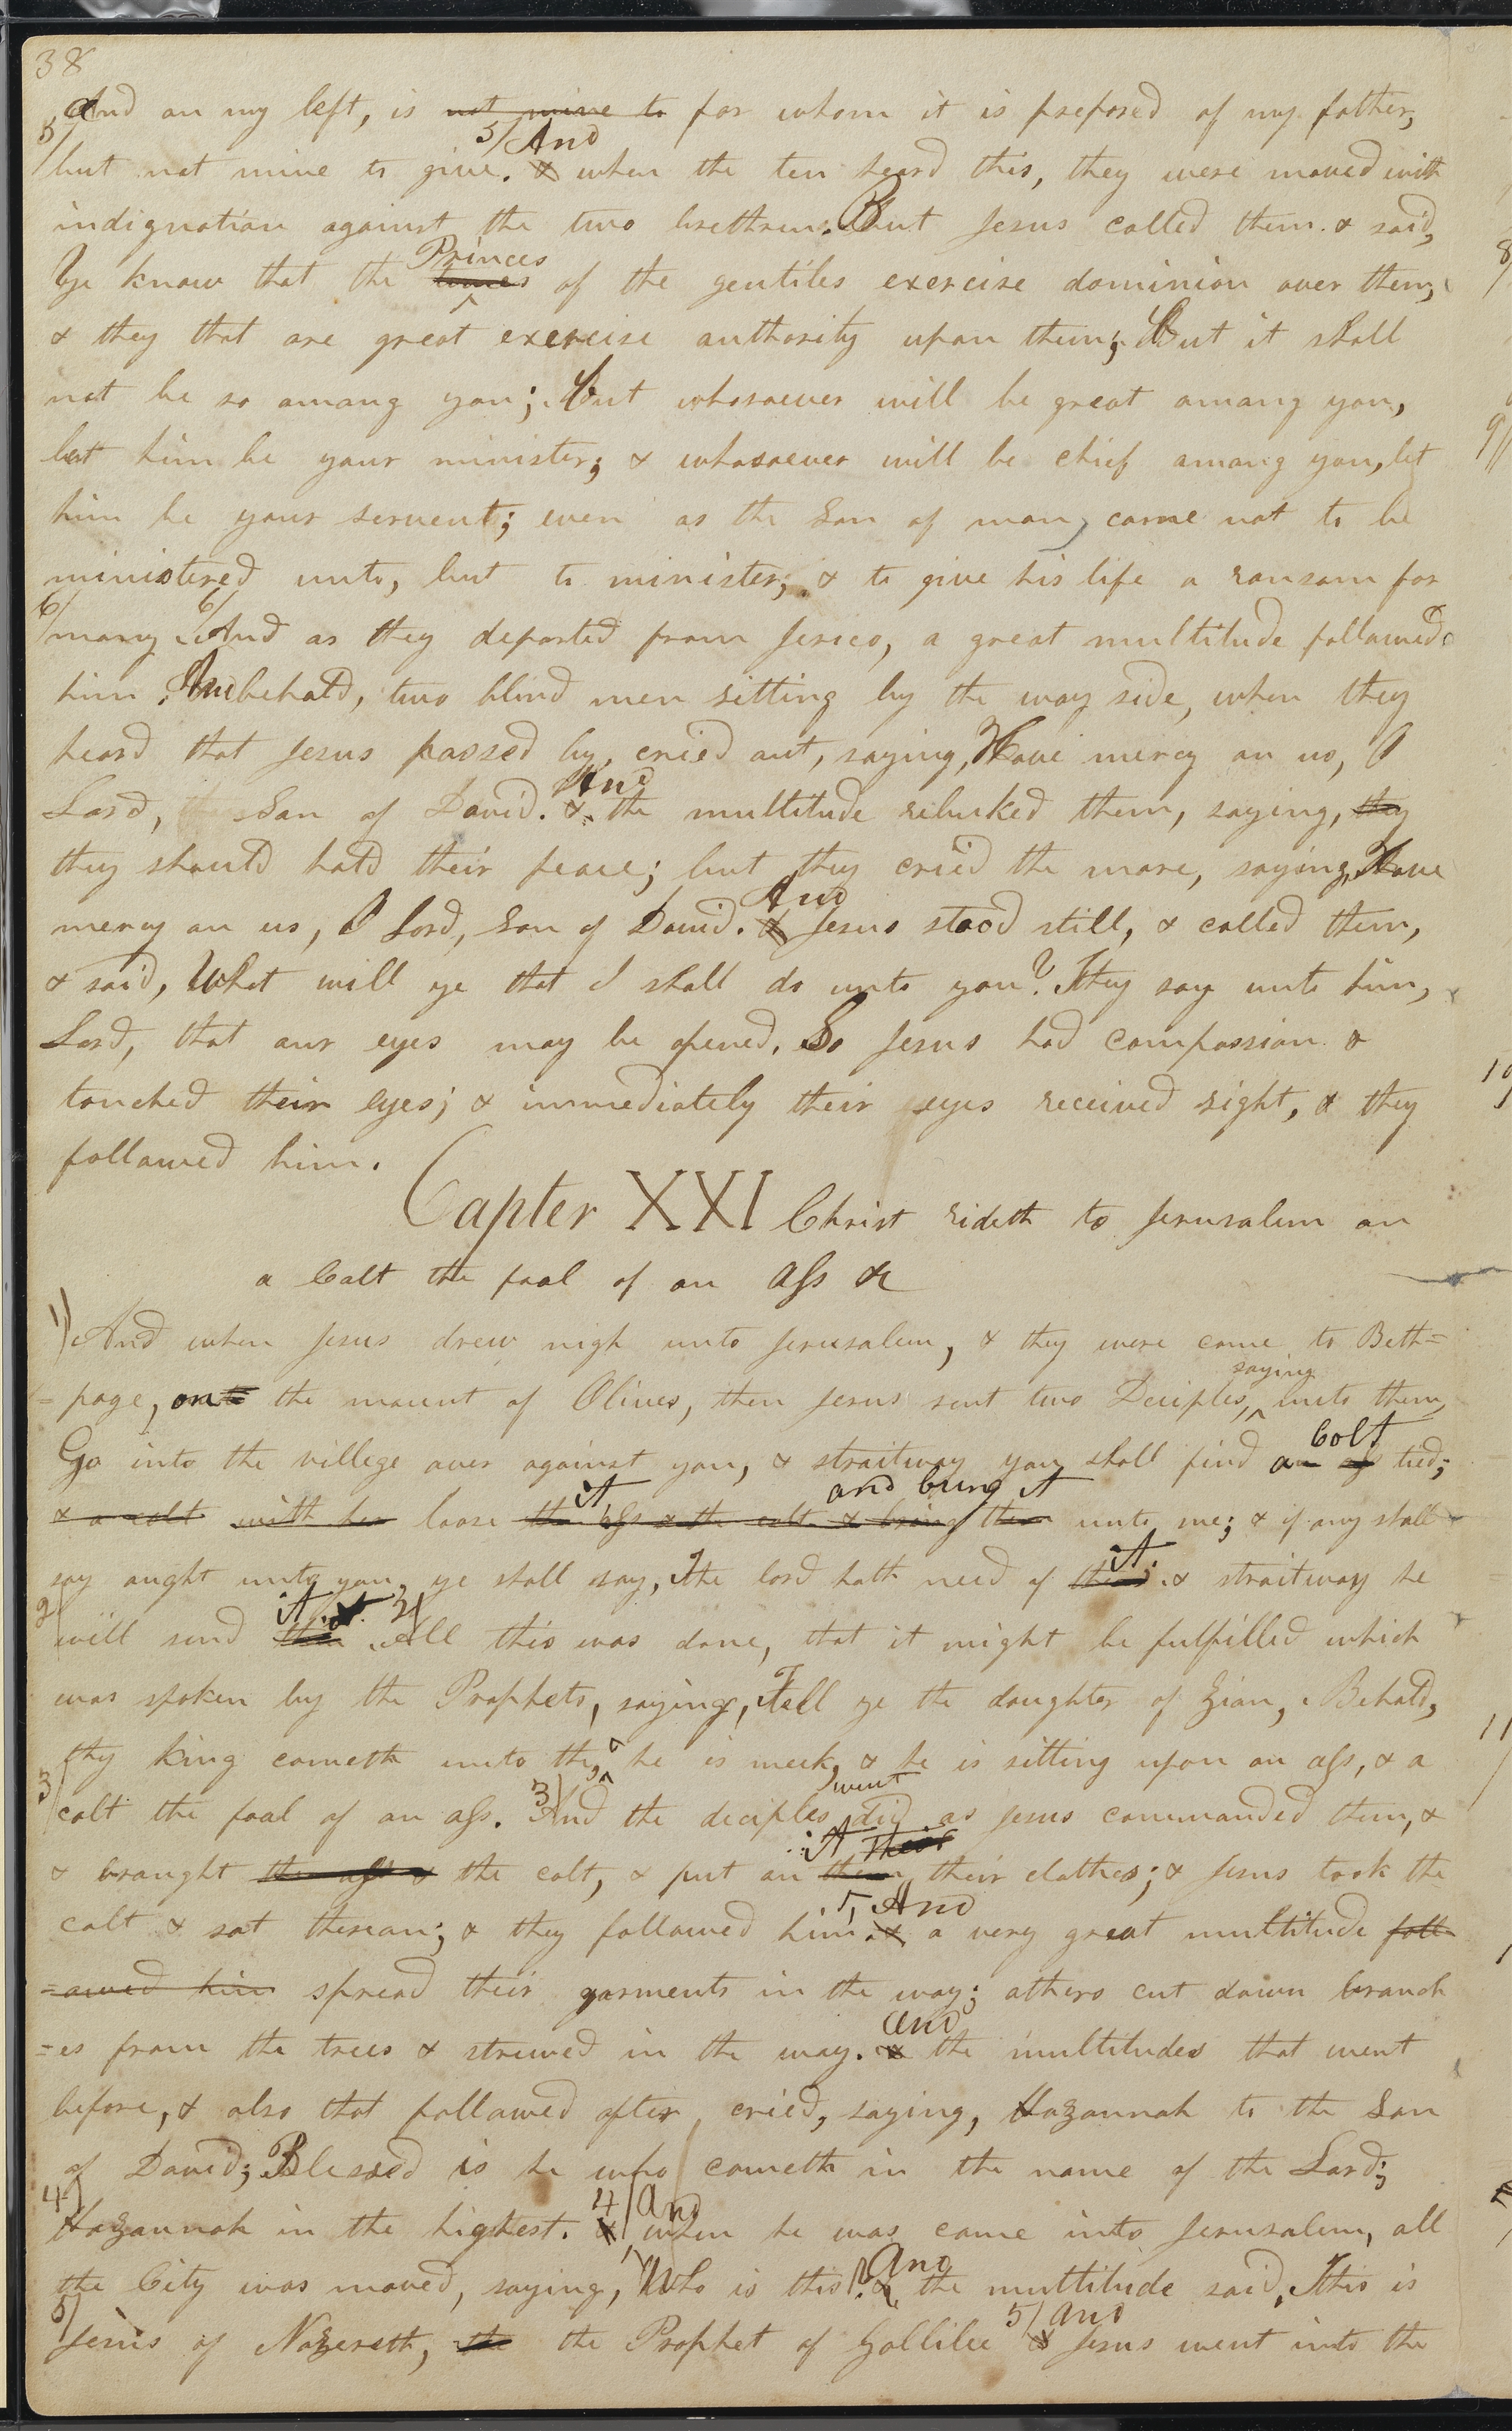 38
And on my left, is not mine to for whom it is prepored of my father,
5/ 5/ And
but not mine to give. & when the ten heard this, they were moved with
indignation against the two brethren. But Jesus called them & said,
Princes
Ye know that the of the gentiles exercise dominion over them,
& they that are great exercise authority upon them; But it shall
not be so among you; But whosoever will be great among you,
let him be your minister; & whosoever will be chief among you, let
him be your servent; even as the Son of man, came not to be
ministered unto, but to minister; & to give his life a ransom for
6/ 6/
many And as they departed from Jerico, a great multitude followed
him And behold, two blind men sitting by the way side, when they
heard that Jesus passed by, cried out, saying, Have mercy on us, O
And
Lord, Son of David. & the multitude rebuked them, saying, they
they should hold their peace; but they cried the more, saying, Have
And
mercy on us, O Lord, Son of David. & Jesus stood still, & called them,
& said, What will ye that I shall do unto you? They say unto him,
Lord, that our eyes may be opened. So Jesus had compassion &
touched their eyes; & immediately their eyes received sight, & they
followed him.
Capter XXI Christ rideth to Jerusalem on
a Colt the foal of an Ass &c
1/
And when Jesus drew nigh unto Jerusalem, & they were come to Beth=
saying
=page, on the mount of Olives, then Jesus sent two Deciples, ^ unto them,
Colt
Go into the villege over against you, & straitway you shall find a tied;
it and bring it
& a colt with her loose the Ass & the colt & bring them unto me; & if any shall
it.
say aught unto you, ye shall say, The lord hath need of them. & straitway he
2/ it. 2/
will send them All this was done, that it might be fulfilled which
was spoken by the Prophets, saying, Tell ye the daughter of Zion, Behold,
thy king cometh unto the, ^ he is meek, & he is sitting upon an ass, & a
3/ 3/ went
colt the foal of an ass. And the deciples did as Jesus commanded them, &
it Their
& brought the ass & the colt, & put on them their clothes; & Jesus took the
5, And
colt & sat thereon; & they followed him. & a very great multitude foll-
=owed him spread their garments in the way; others cut down branch
and
=es from the trees & strewed in the way. & the multitudes that went
before, & also that followed after, cried, saying, Hozannah to the Son
of David; Blessed is he who cometh in the name of the Lord;
4/ 4/ And
Hozannah in the highest. & when he was come into Jerusalem, all
And
the City was moved, saying, Who is this? & the multitude said, This is
5/ 5/ and
Jesus of Nazereth, the the Prophet of Gallilee & Jesus went into the
8/
9/
10
11